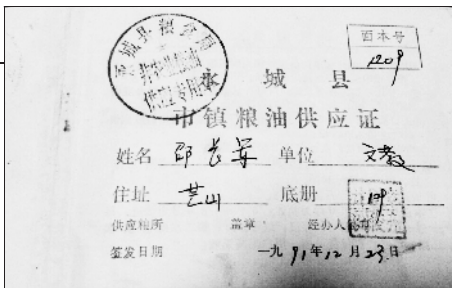 永城县粮食局
非农业粮油
供应专用章
面本号
1209
永城县
市镇粮油供应证
姓名 邵长军 单位 文教
住址 芒山 底册 109
供应粮所 盖章 经办人
签发日期 一九91年12月23日